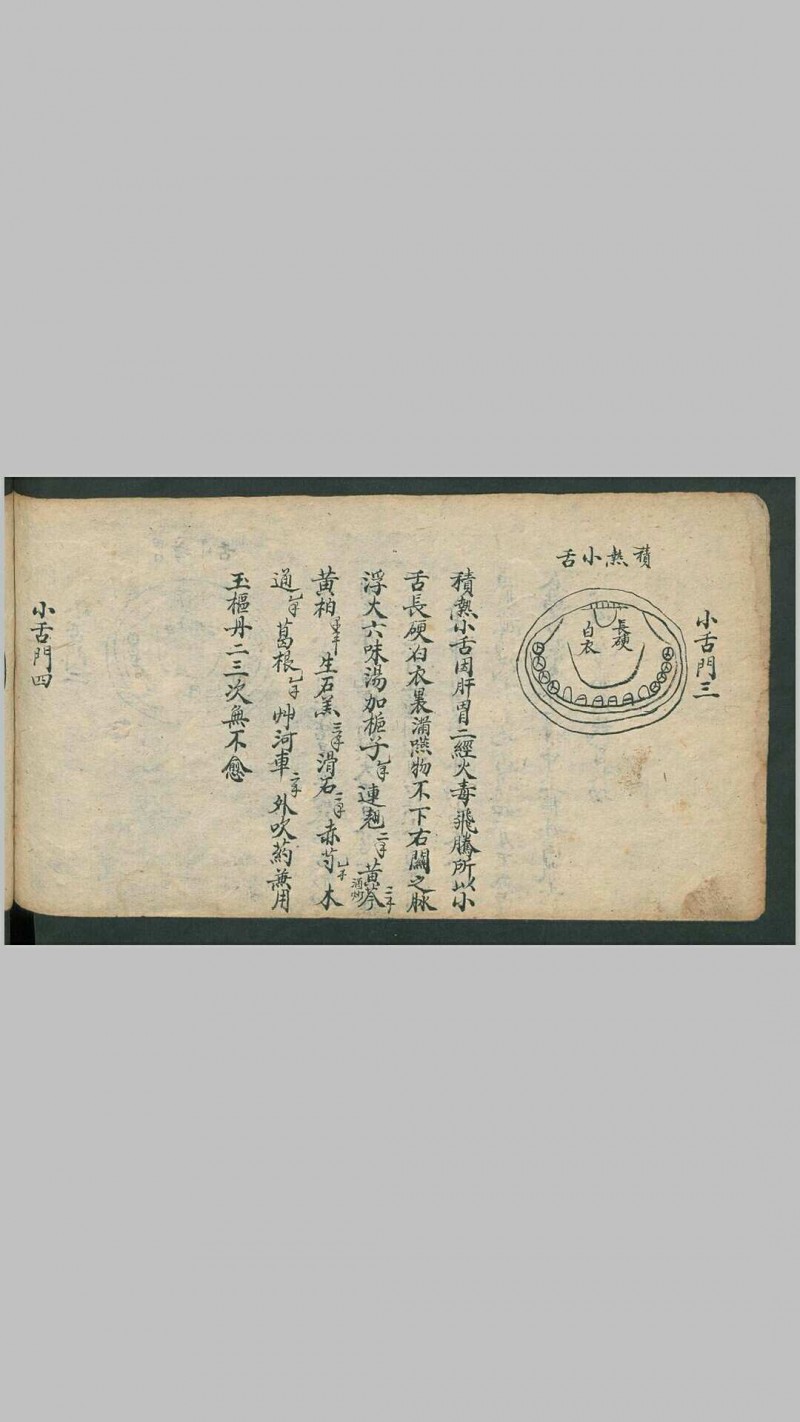 小舌門三
積热小舌
長硬
白衣
積熱小舌因肝胃二經火毒飛騰所以小
舌長硬白衣裹滿嚥物不下右關之脉
浮大六味湯加梔子 連翹二 黃芩三 酒炒
黄柏 生石羔三 滑石二 赤芍 木
通 葛根 艸河車二 外吹葯無用
玉樞丹二三次無不愈
小舌門四